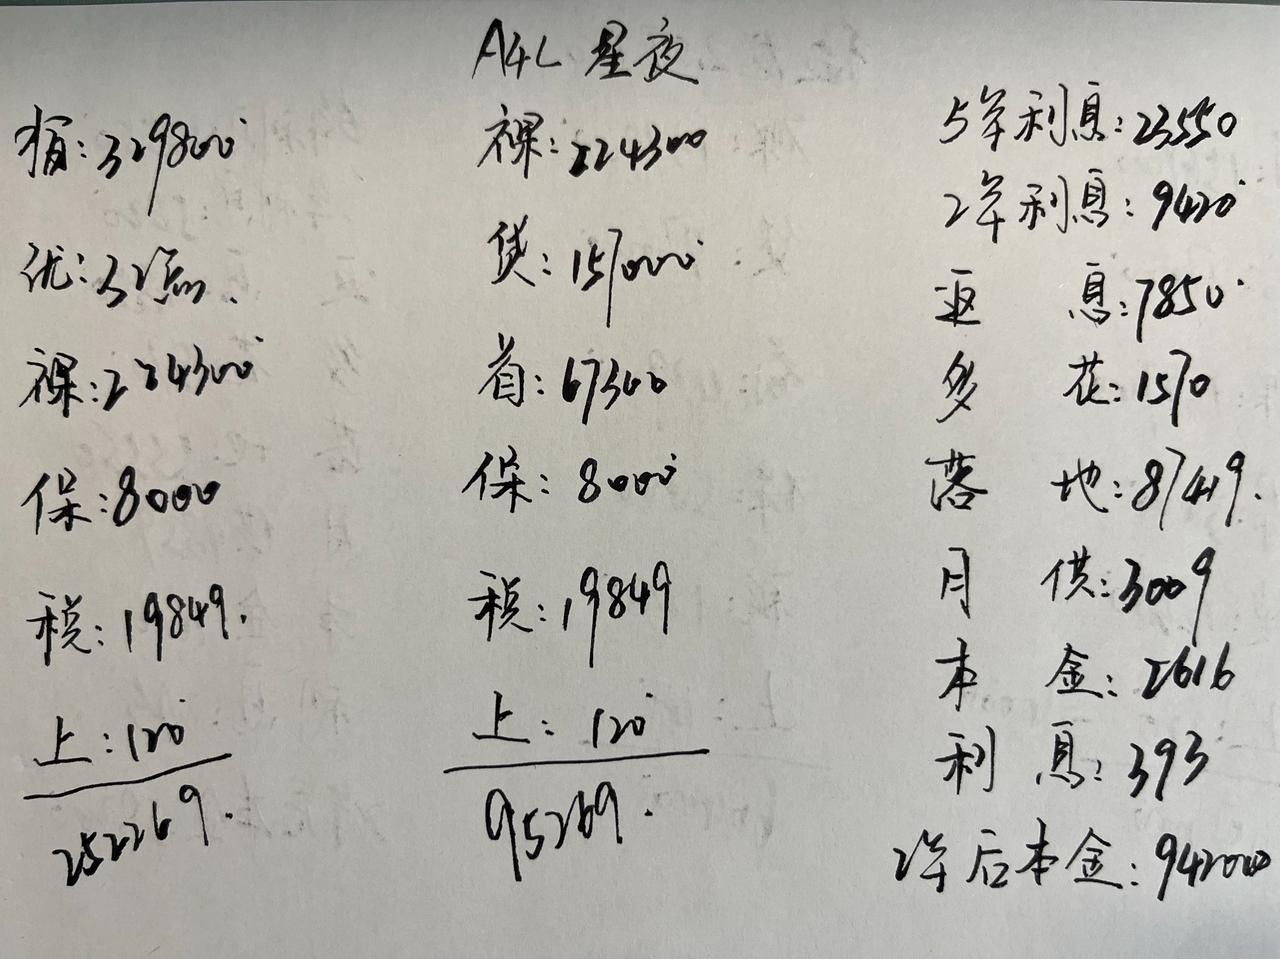 A4L 星夜
指: 329800
优: 32点.
裸: 224300
保: 8000
税: 19849.
上: 120
252269.
裸: 224300
贷: 157000
首: 67300
保: 8000
税: 19849
上: 120
95269.
5年利息: 23550
2年利息: 9420
返 息: 7850
多 花: 1570
落 地: 87419.
月 供: 3009
本 金: 2616
利 息: 393
2年后本金: 94200